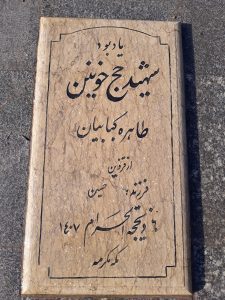 یادبود
شهید حج خونین
طاهره کبابیان
از قزوین
فرزند: حسین
۶ ذیحجة الحرام ۱۴۰۷
مکه مکرمه